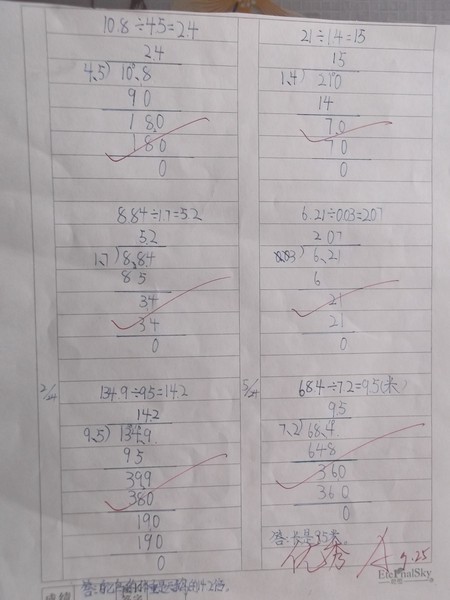 10.8÷4.5=2.4
2.4
4.5)10.8
90
180
180
0
21÷1.4=15
15
1.4)210
14
70
70
0
8.84÷1.7=5.2
5.2
1.7)8.84
85
34
34
0
6.21÷0.03=207
207
0.03)6.21
6
21
21
0
2/24
134.9÷9.5=14.2
14.2
9.5)134.9
95
399
380
190
190
0
5/24
68.4÷7.2=9.5(米)
9.5
7.2)68.4
648
360
360
0
答:长是35米。
优秀 A 9.25
EtePhalSky